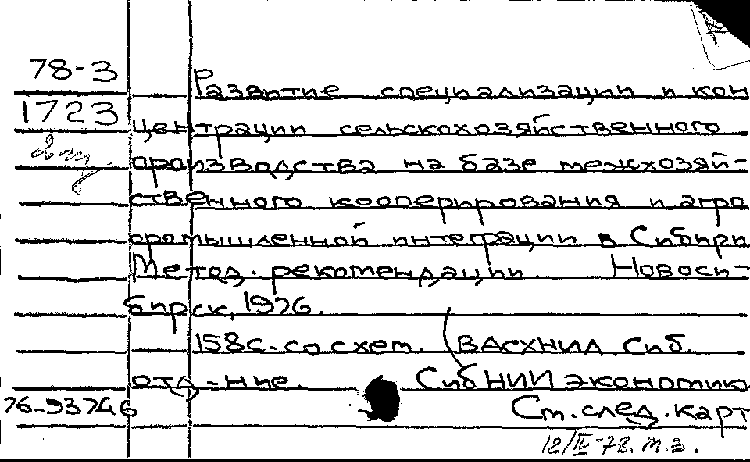 78-3
Развитие специализации и кон
1723
центрации сельскохозяйственного
производства на базе межхозяй-
ственного кооперирования и агро
промышленной интеграции в Сибири
Метод. рекомендации. Новоси-
бирск, 1976.
158с. со схем. (ВАСХНИЛ. Сиб.
отд-ние. СибНИИ экономик
76-93746
Ст. след. карт
12/IV-78.